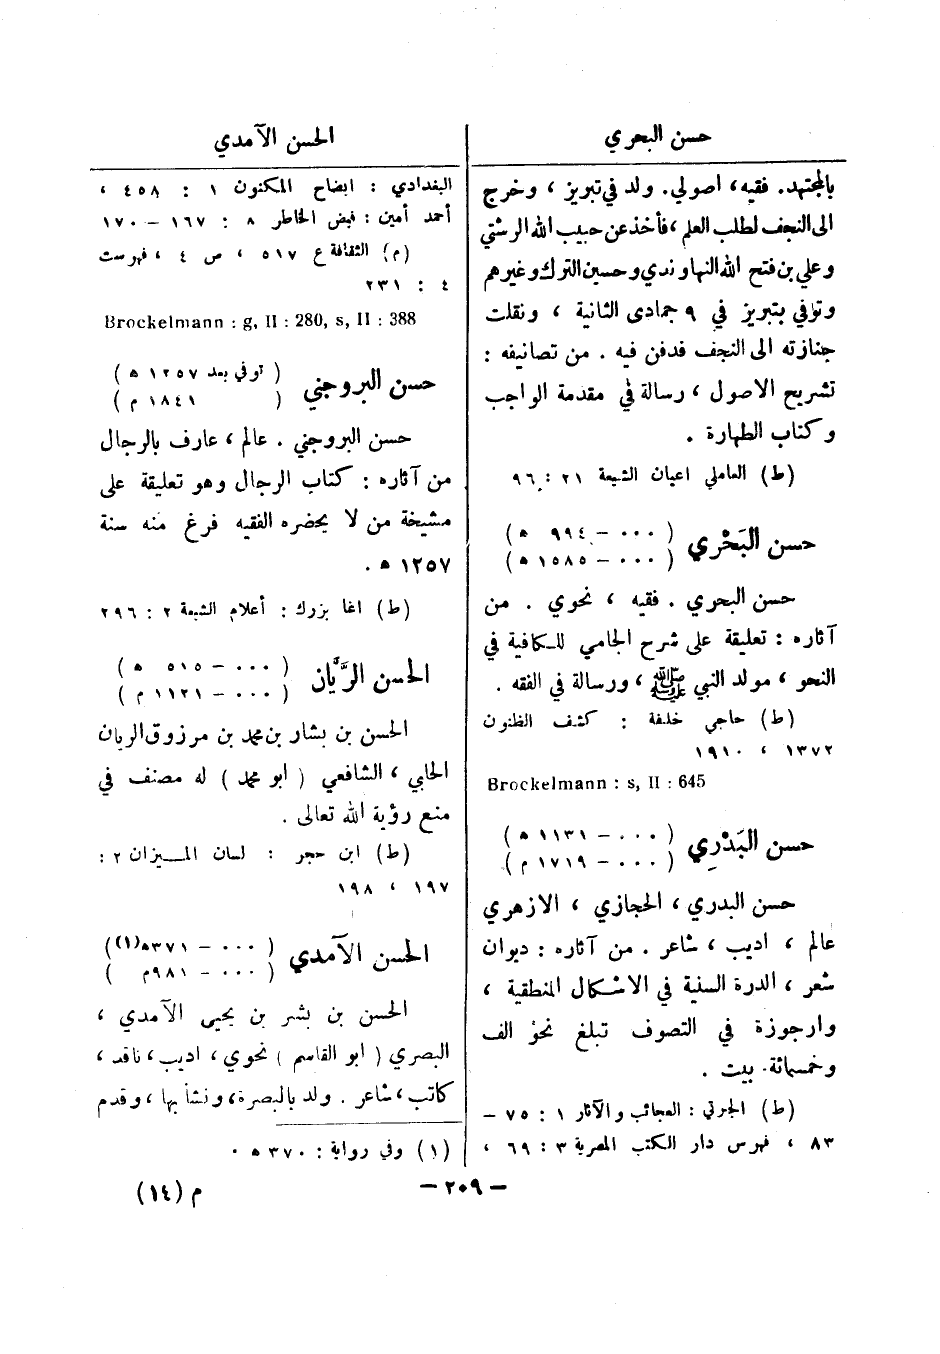 حسن البحري
بالمجتهد. فقيه، اصولي. ولد في تبريز ، وخرج
الى النجف لطلب العلم ، فأخذ عن حبيب الله الرشتي
وعلي بن فتح الله النهاوندي وحسين الترك وغيرهم
وتوفي بتبريز في ٩ جمادى الثانية ، ونقلت
جنازته الى النجف فدفن فيه . من تصانيفه :
تشريح الاصول ، رسالة في مقدمة الواجب
وكتاب الطهارة .
(ط) العاملي اعيان الشيعة ٢١ : ٩٦
حسن البَحْري ( ٠٠٠ - ٩٩٤ ه )
( ٠٠٠ - ١٥٨٥ ه )
حسن البحري . فقيه ، نحوي . من
آثاره : تعليقة على شرح الجامي للكافية في
النحو ، مولد النبي ﷺ ، ورسالة في الفقه .
(ط) حاجي خليفة : كشف الظنون
١٣٧٢ ، ١٩١٠
Brockelmann : s, II : 645
حسن البَدْرِي ( ٠٠٠ - ١١٣١ ه )
( ٠٠٠ - ١٧١٩ م )
حسن البدري ، الحجازي ، الازهري
عالم ، اديب ، شاعر . من آثاره : ديوان
شعر ، الدرة السنية في الاشكال المنطقية ،
وارجوزة في التصوف تبلغ نحو الف
وخمسمائة بيت .
(ط) الجبرتي : العجائب والآثار ١ : ٧٥ -
٨٣ ، فهرس دار الكتب المصرية ٣ : ٦٩ ،
الحسن الآمدي
البغدادي : ايضاح المكنون ١ : ٤٥٨ ،
أحمد أمين : فيض الخاطر ٨ : ١٦٧ - ١٧٠
(م) الثقافة ع ٥١٧ ، ص ٤ ، فهرست
٤ : ٢٣١
Brockelmann : g, II : 280, s, II : 388
حسن البروجني ( توفي بعد ١٢٥٧ ه )
( ١٨٤١ م )
حسن البروجني . عالم ، عارف بالرجال
من آثاره : كتاب الرجال وهو تعليقة على
مشيخة من لا يحضره الفقيه فرغ منه سنة
١٢٥٧ ه .
(ط) اغا بزرك : أعلام الشيعة ٢ : ٢٩٦
الحسن الرَّيَّان ( ٠٠٠ - ٥١٥ ه )
( ٠٠٠ - ١١٢١ م )
الحسن بن بشار بن محمد بن مرزوق الريان
الحلبي ، الشافعي ( ابو محمد ) له مصنف في
منع رؤية الله تعالى .
(ط) ابن حجر : لسان الميزان ٢ :
١٩٧ ، ١٩٨
الحسن الآمدي ( ٠٠٠ - ٣٧١ه(١))
( ٠٠٠ - ٩٨١م )
الحسن بن بشر بن يحيى الآمدي ،
البصري ( ابو القاسم ) نحوي ، اديب ، ناقد ،
كاتب ، شاعر . ولد بالبصرة ، ونشأ بها ، وقدم
(١) وفي رواية : ٣٧٠ ه .
- ٢٠٩ -
م (١٤)